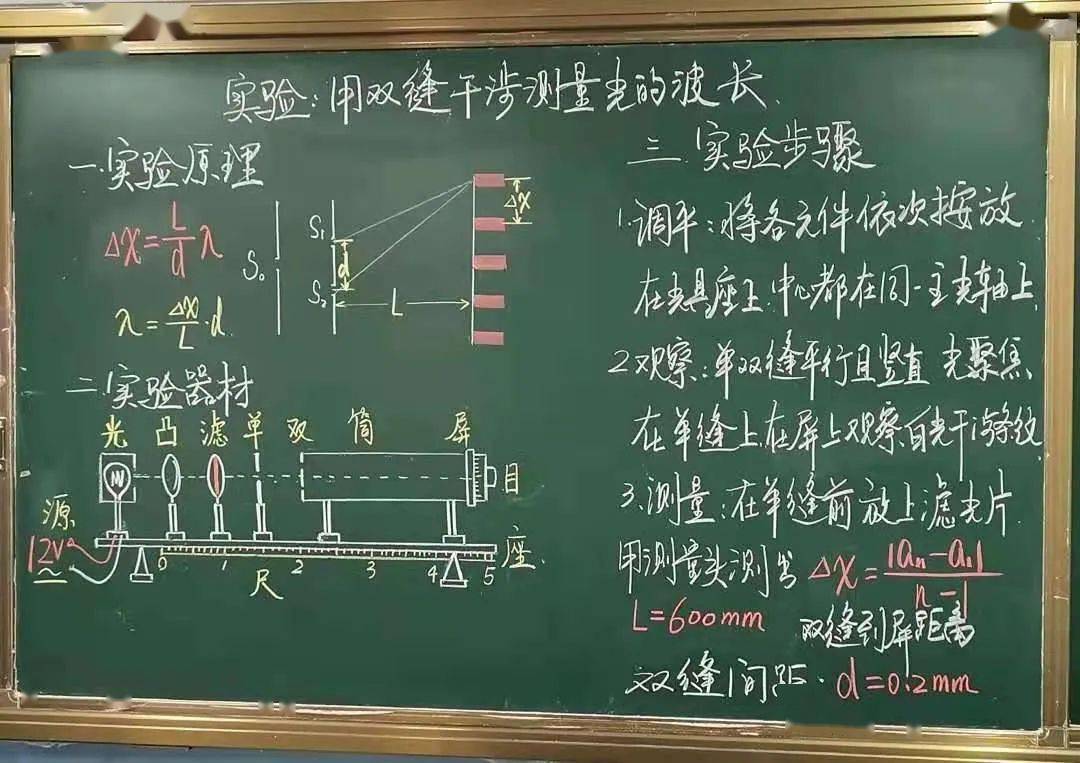 实验:用双缝干涉测量光的波长.
一.实验原理
Δx=L/d λ
λ=Δx/L·d
S₀
S₁
S₂
d
L
Δx
二.实验器材
光 凸 滤 单 双 筒 屏
目
源
12V
座.
0 1 2 3 4 5
尺
三.实验步骤
1.调平:将各元件依次按放
在光具座上.中心都在同一主光轴上.
2.观察:单双缝平行且竖直 光聚焦
在单缝上在屏上观察白光干涉条纹.
3.测量:在单缝前放上滤光片.
用测量头测出 Δx=|aₙ-a₁|/n-1
L=600mm 双缝到屏距离
双缝间距. d=0.2mm